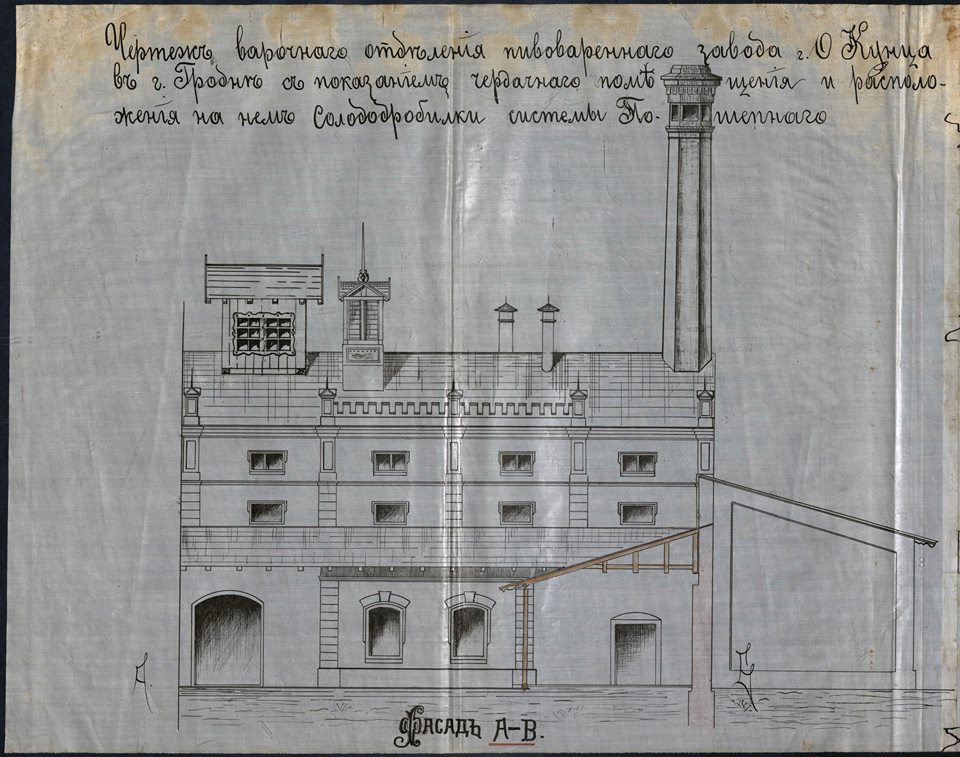 Чертежъ варочнаго отдѣленія пивовареннаго завода г. О Кунца
въ г. Гроднѣ съ показаніемъ чердачнаго помѣщенія и располо-
женія на немъ Солододробилки системы По- шепнаго
А.
Фасадъ А–В.